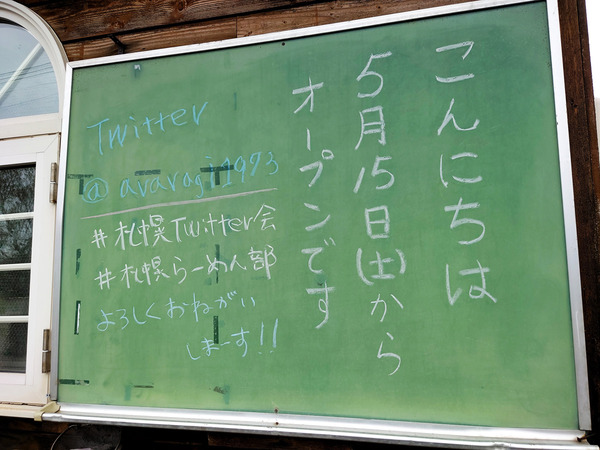 こんにちは
5月15日(土)から
オープンです
Twitter
@ araragi1973
#札幌Twitter会
#札幌らーめん部
よろしくおねがい
しまーす!!